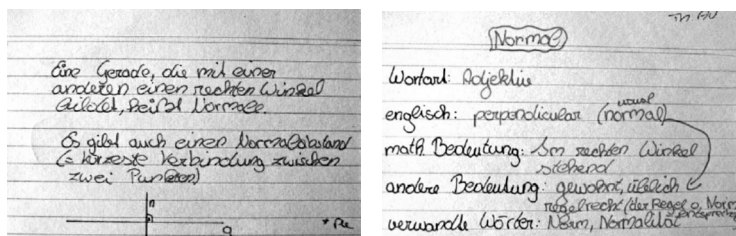 Eine Gerade, die mit einer
anderen einen rechten Winkel
bildet, heißt Normale.
Es gibt auch einen Normalabstand
(= kürzeste Verbindung zwischen
zwei Punkten)
n
g
Normal
Wortart: Adjektiv
englisch: perpendicular (normal)
usual
math. Bedeutung: Im rechten Winkel
stehend
andere Bedeutung: gewohnt, üblich
regelrecht (der Regel o. Norm
entsprechend
verwandte Wörter: Norm, Normalität